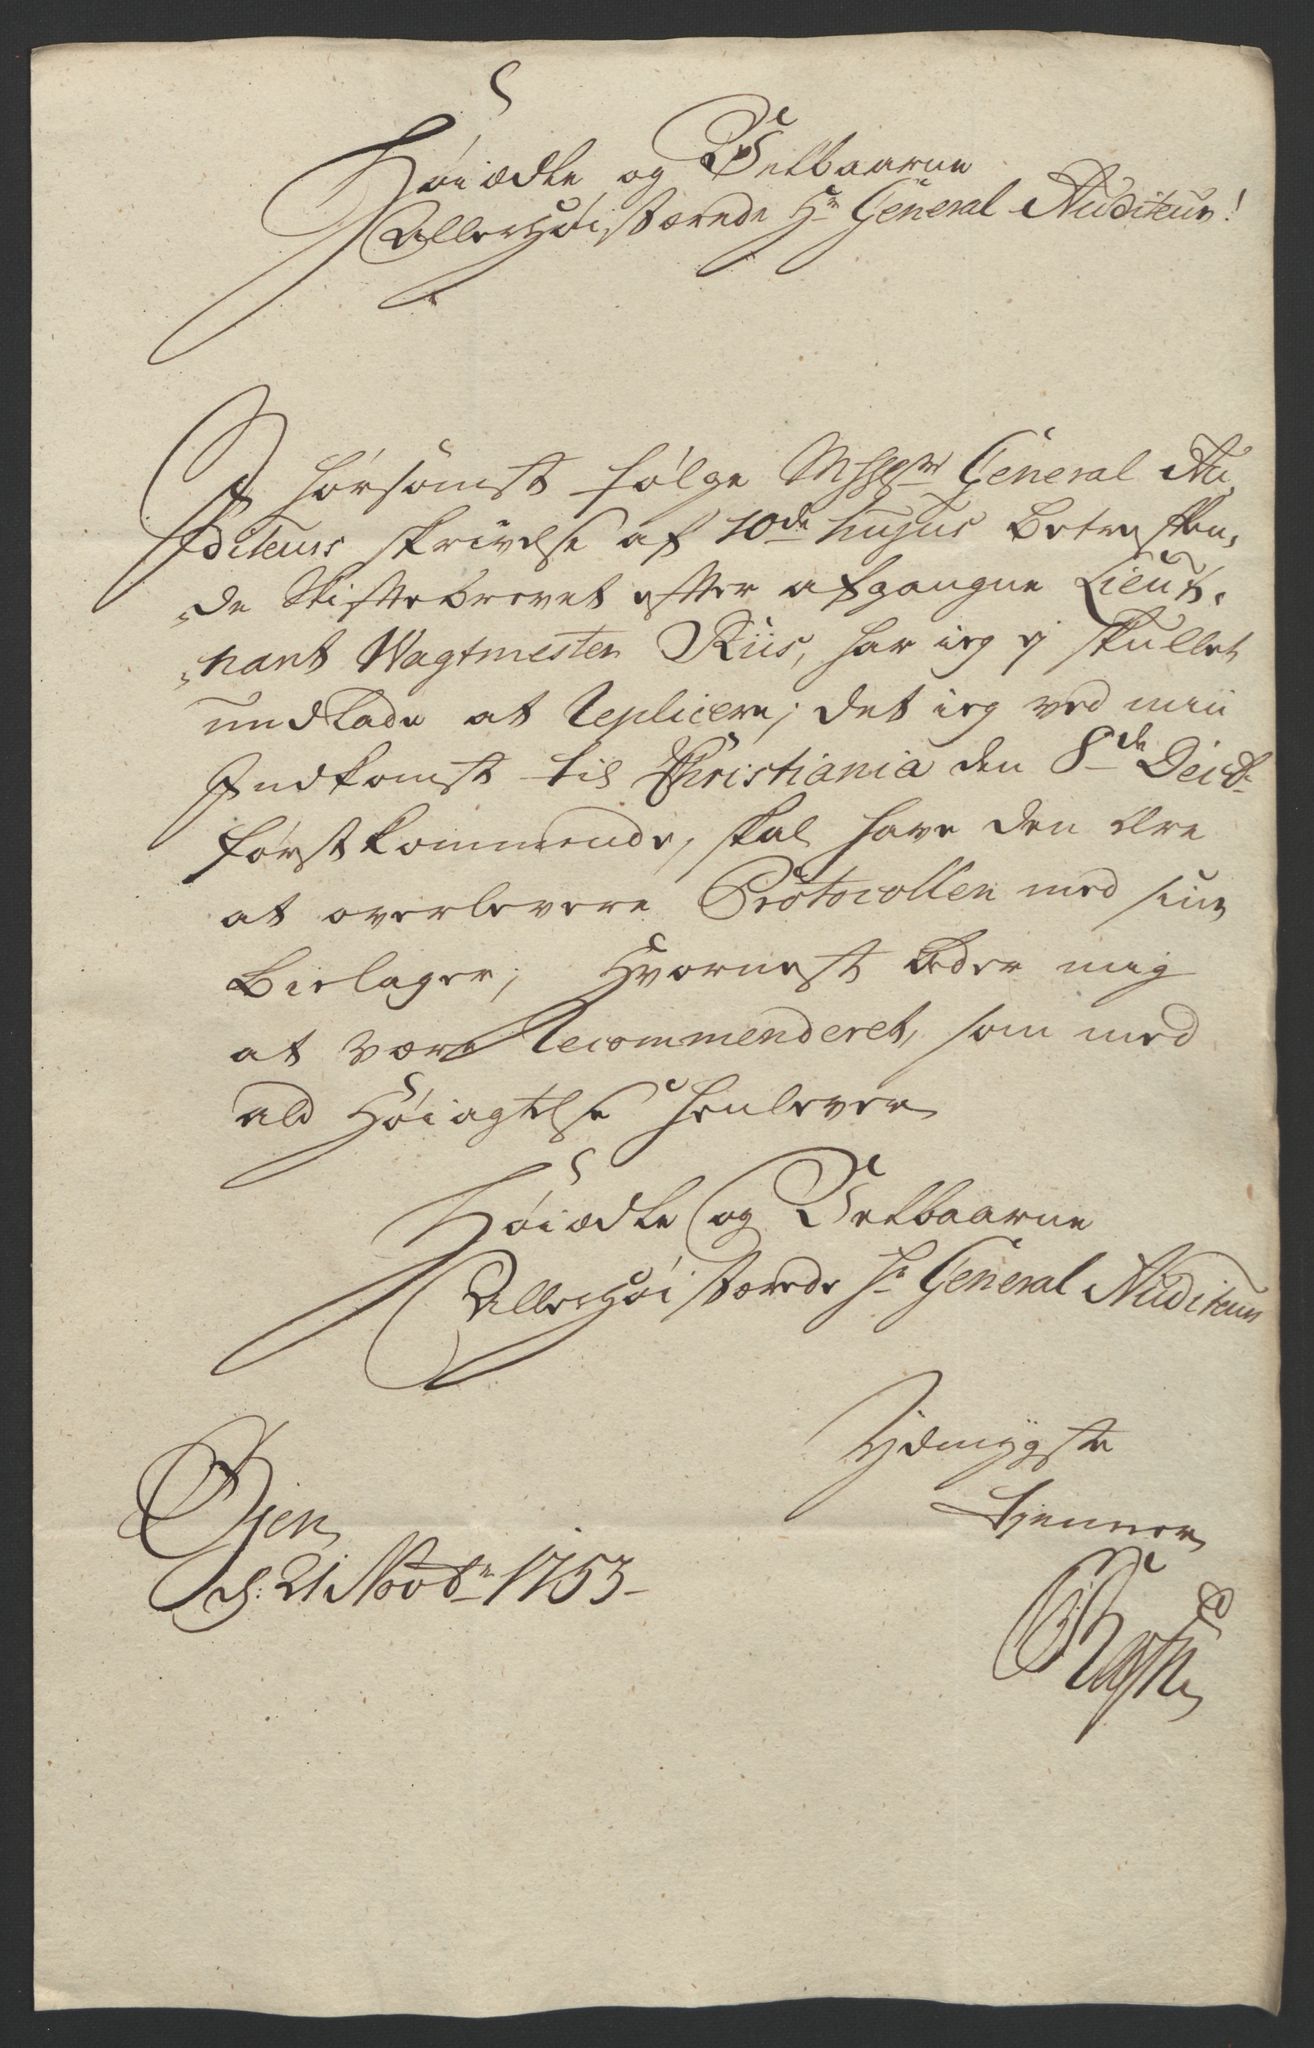 Høiædle og Velbaarne
Allerhøistærede Hr General Auditeur!
I hørsomst følge Hr General Au,
diteurs skrivelse af 10de hujus betreffen,
de Skiftebrevet efter afgangne Lieut,
nant Wagtmester Riis, har ieg ej skullet
undlade at Replicere; det ieg ved min
Indkomst til Christiania den 8de Decbr
førstkommende, skal have den Ære
at overlevere Protocollen med sine
Bielager; Hvornest beder mig
at være Recommenderet, som med
ald Høiagtelse henlever
Høiædle og Velbaarne
Allerhøistærede Hr General Auditeurs
Ydmygste
tjenner
d: 21 Novbr 1753